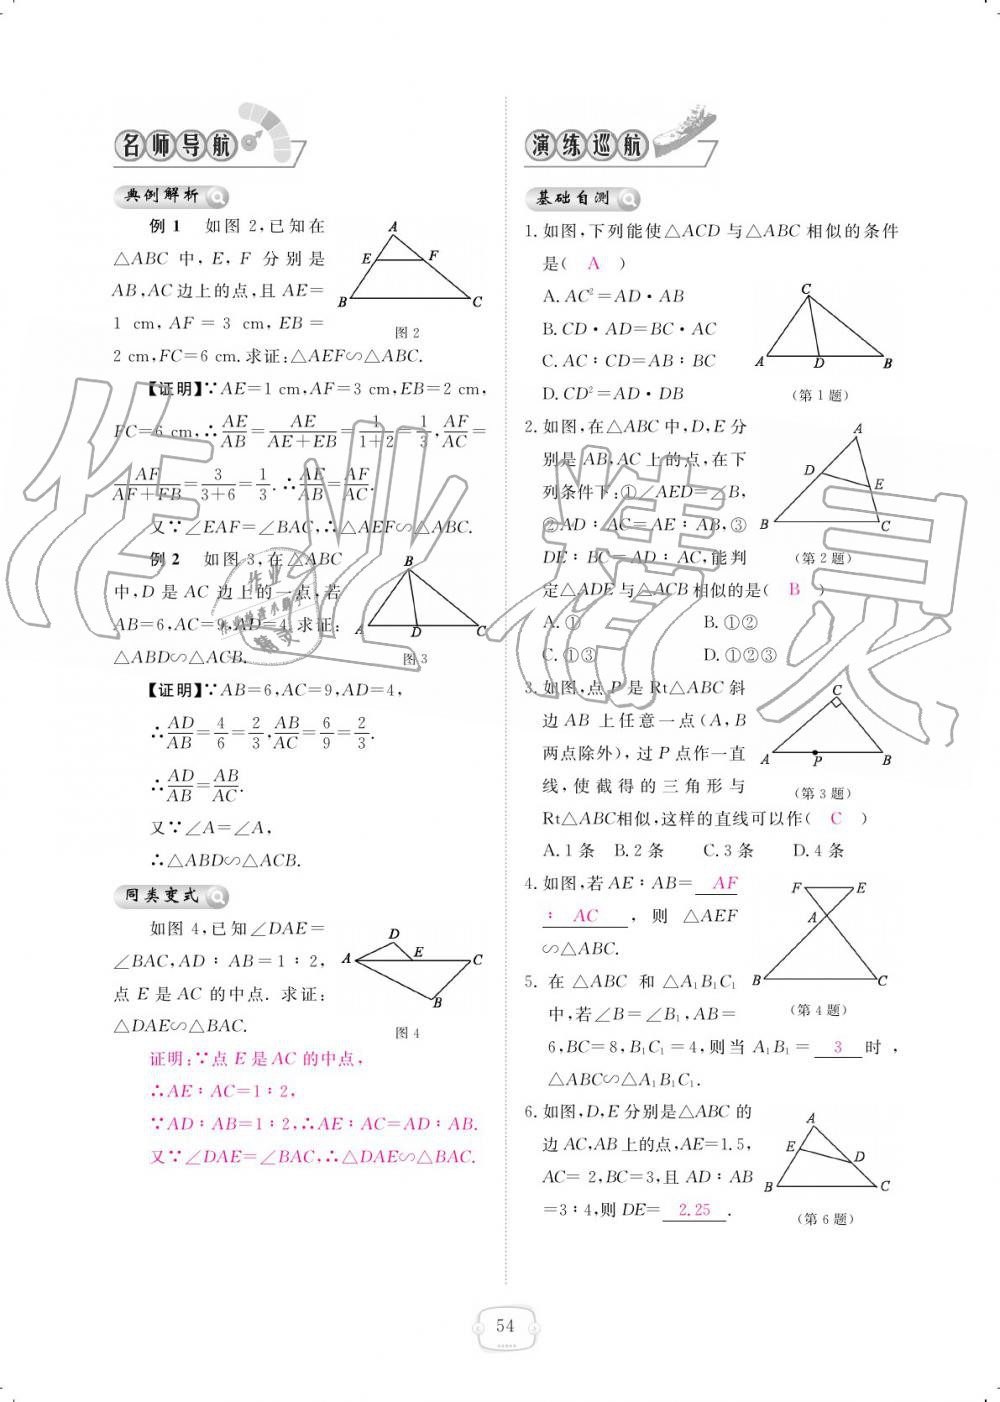 名师导航
典例解析
例1 如图2,已知在
△ABC中,E,F分别是
AB,AC边上的点,且AE=
1 cm,AF=3 cm,EB=
2 cm,FC=6 cm.求证:△AEF∽△ABC.
A
E
F
B
C
图2
【证明】∵AE=1 cm,AF=3 cm,EB=2 cm,
FC=6 cm,∴AE/AB=AE/(AE+EB)=1/(1+2)=1/3,AF/AC=
AF/(AF+FB)=3/(3+6)=1/3.∴AE/AB=AF/AC.
又∵∠EAF=∠BAC,∴△AEF∽△ABC.
例2 如图3,在△ABC
中,D是AC边上的一点,若
AB=6,AC=9,AD=4.求证:
△ABD∽△ACB.
B
A
D
C
图3
【证明】∵AB=6,AC=9,AD=4,
∴AD/AB=4/6=2/3,AB/AC=6/9=2/3.
∴AD/AB=AB/AC.
又∵∠A=∠A,
∴△ABD∽△ACB.
同类变式
如图4,已知∠DAE=
∠BAC,AD∶AB=1∶2,
点E是AC的中点.求证:
△DAE∽△BAC.
D
A
E
C
B
图4
证明:∵点E是AC的中点,
∴AE∶AC=1∶2,
∵AD∶AB=1∶2,∴AE∶AC=AD∶AB.
又∵∠DAE=∠BAC,∴△DAE∽△BAC.
演练巡航
基础自测
1.如图,下列能使△ACD与△ABC相似的条件
是( A )
A.AC²=AD·AB
B.CD·AD=BC·AC
C.AC∶CD=AB∶BC
D.CD²=AD·DB
C
A
D
B
(第1题)
2.如图,在△ABC中,D,E分
别是AB,AC上的点,在下
列条件下:①∠AED=∠B,
②AD∶AC=AE∶AB,③
DE∶BC=AD∶AC,能判
定△ADE与△ACB相似的是( B )
A.① B.①②
C.①③ D.①②③
A
D
E
B
C
(第2题)
3.如图,点P是Rt△ABC斜
边AB上任意一点(A,B
两点除外),过P点作一直
线,使截得的三角形与
Rt△ABC相似,这样的直线可以作( C )
A.1条 B.2条 C.3条 D.4条
C
A
P
B
(第3题)
4.如图,若AE∶AB= AF
∶ AC ,则△AEF
∽△ABC.
F
E
A
B
C
(第4题)
5.在△ABC和△A₁B₁C₁
中,若∠B=∠B₁,AB=
6,BC=8,B₁C₁=4,则当A₁B₁= 3 时,
△ABC∽△A₁B₁C₁.
6.如图,D,E分别是△ABC的
边AC,AB上的点,AE=1.5,
AC=2,BC=3,且AD∶AB
=3∶4,则DE= 2.25 .
A
E
D
B
C
(第6题)
54
作业精灵